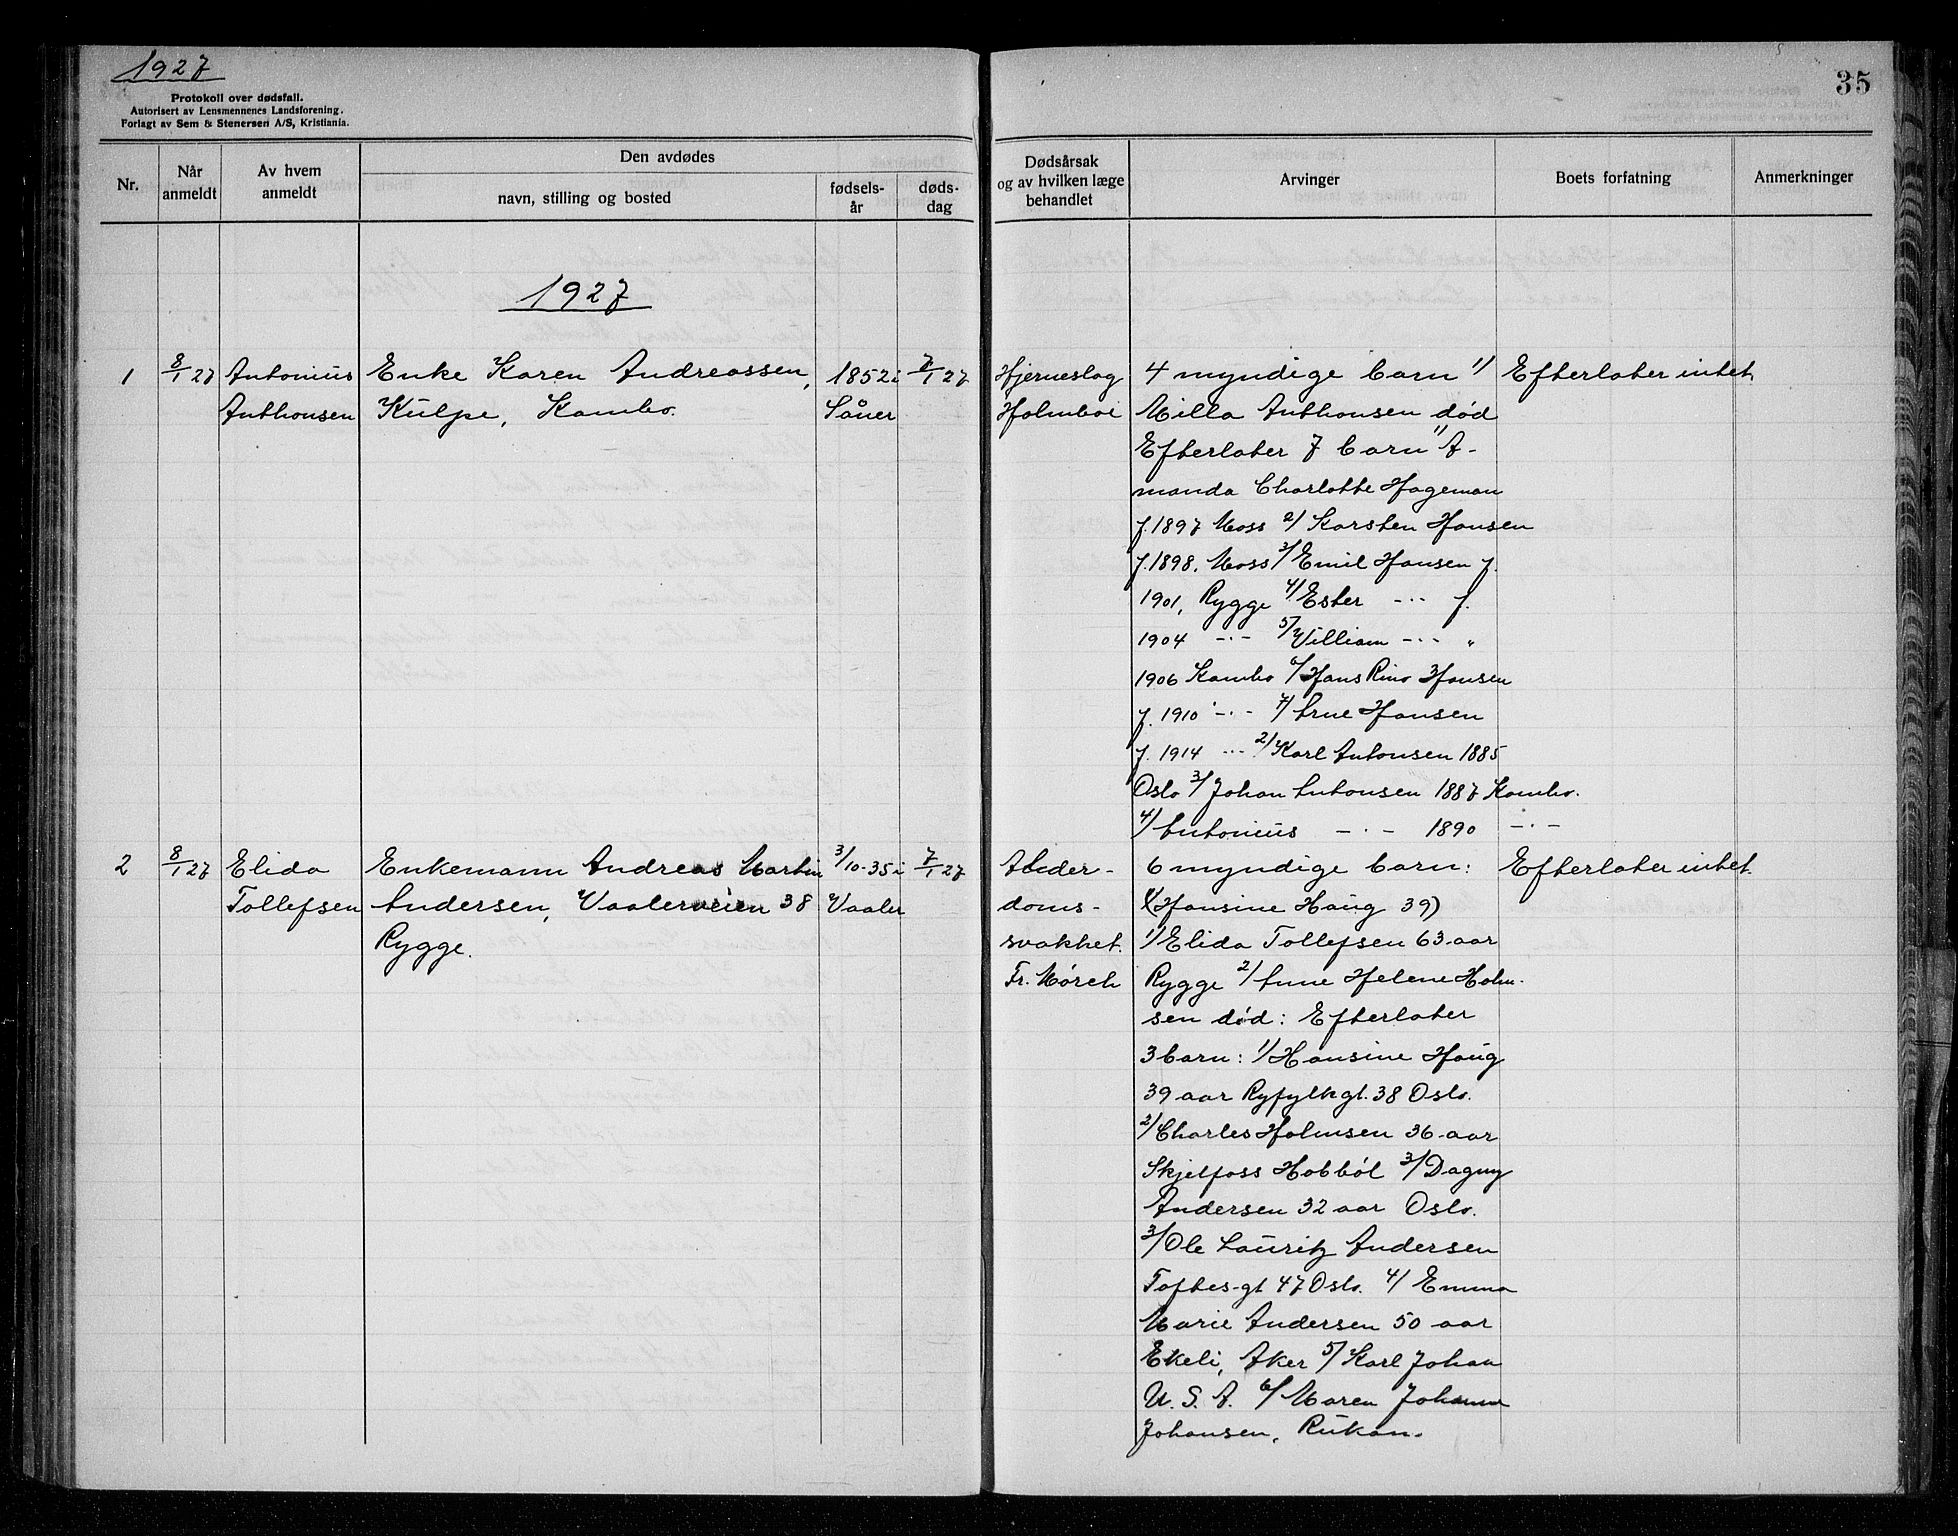 1927
Protokoll over dødsfall.
Autorisert av Lensmennenes Landsforening.
Forlagt av Sem & Stenersen A/S, Kristiania.
35
Nr.
Når anmeldt
Av hvem anmeldt
Den avdødes
navn, stilling og bosted
fødsels-år
døds-dag
Dødsårsak og av hvilken læge behandlet
Arvinger
Boets forfatning
Anmerkninger
1927
1
8/1 27
Antonius
Anthonsen
Enke Karen Andreassen,
Kulpe, Kambo.
1852 i
Såner
7/1 27
Hjerneslag
Holmboe
4 myndige barn 1/
Milla Anthonsen død
Efterlater 7 barn 1/ A-
manda Charlotte Hageman
f. 1897 Moss 2/ Karsten Hansen
f. 1898. Moss 3/ Emil Hansen f.
1901, Rygge 4/ Ester -"- f.
1904 -"- 5/ William -"- "
1906 Kambo 6/ Hans Rino Hansen
f. 1910 -"- 7/ Arne Hansen
f. 1914 -"- 2/ Karl Antonsen 1885
Oslo 3/ Johan Antonsen 1887 Kambo.
4/ Antonius -"- 1890 -"-
Efterlater intet.
2
8/1 27
Elida
Tollefsen
Enkemann Andreas Martin
Andersen, Vaalerveien 38
Rygge.
3/10-35 i
Vaaler
7/1 27
Alder-
doms-
svakhet.
Fr. Mørch
6 myndige barn:
1/(Hansine Haug 39)
1/ Elida Tollefsen 63 aar
Rygge 2/ Anne Helene Holm-
sen død: Efterlater
3 barn: 1/ Hansine Haug
39 aar Ryfylkgt. 38 Oslo.
2/ Charles Holmsen 36 aar
Skjelfoss Hobbøl 3/ Dagny
Andersen 32 aar Oslo.
3/ Ole Lauritz Andersen
Toftes-gt 47 Oslo. 4/ Emma
Marie Andersen 50 aar
Ekeli, Aker 5/ Karl Johan
U.S.A. 6/ Maren Johanna
Johansen, Rukan.
Efterlater intet.